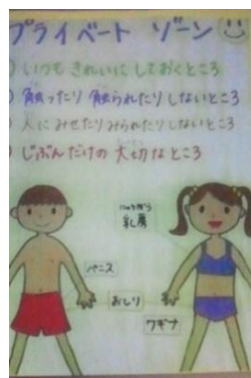 プライベート ゾーン
) いつも きれいに しておくところ
) 触ったり 触られたりしないところ
) 人に みせたりみられたりしないところ
) じぶんだけの 大切なところ
にゅうぼう
乳房
ペニス
おしり
ワギナ